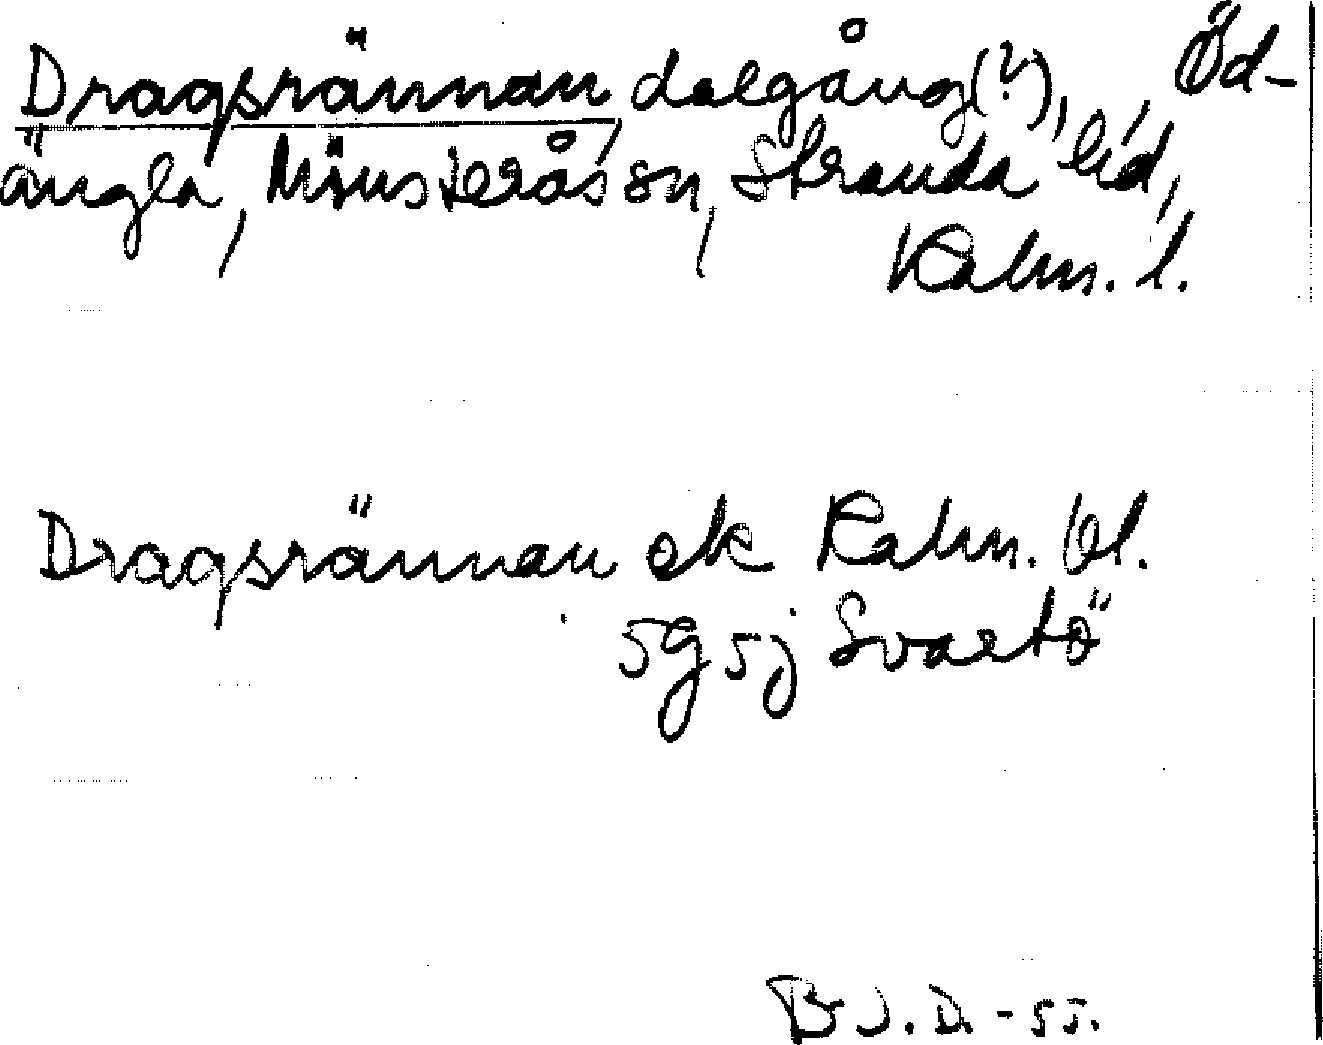 Dragsrännan, dalgång(?), Öd-
ängla, Mönsterås sn, Stranda hd,
Kalm. l.
Dragsrännan ek Kalm. bl.
5g 5j Svartö
B J. D. -55.